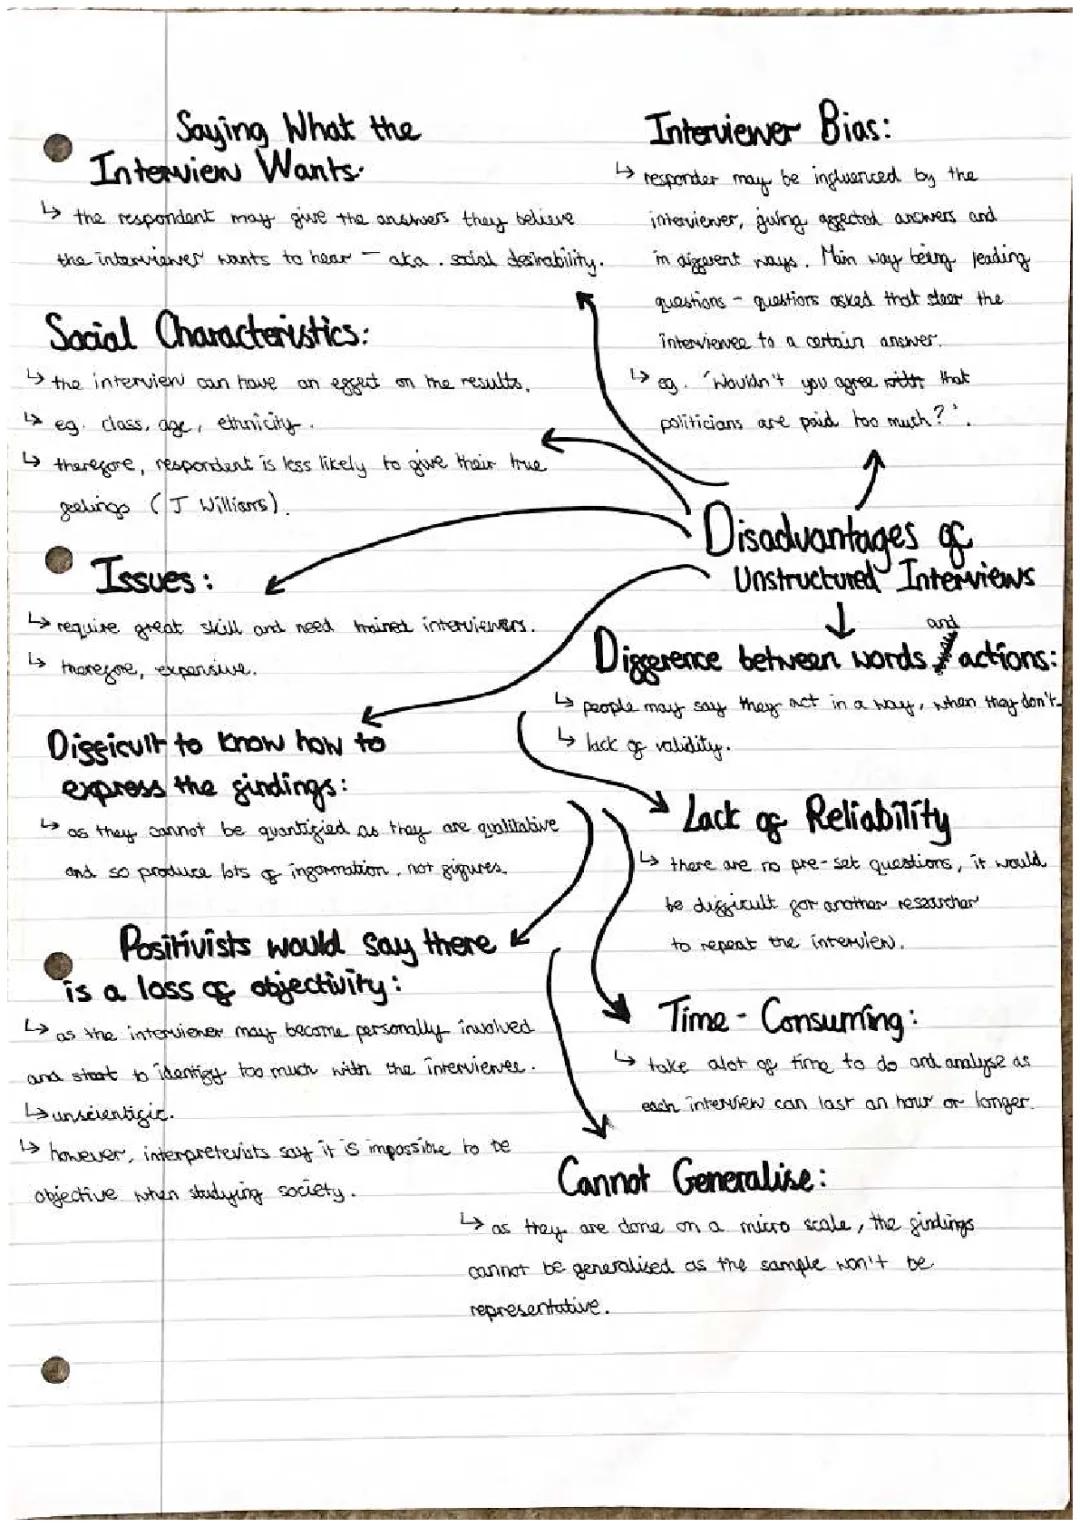 Saying What the
Interview Wants.
↳ the respondent may give the answers they believe
the interviewer wants to hear - aka. social desirability.
Interviewer Bias:
↳ responder may be influenced by the
interviewer, giving affected answers and
in different ways. Main way being leading
questions - questions asked that steer the
interviewee to a certain answer.
↳ eg. 'Wouldn't you agree with that
politicians are paid too much?'.
Social Characteristics:
↳ the interview can have an effect on the results.
↳ eg. class, age, ethnicity.
↳ therefore, respondent is less likely to give their true
feelings (J Williams).
Disadvantages of
Unstructured Interviews
Issues:
↳ require great skill and need trained interviewers.
↳ therefore, expensive.
Difference between words and actions:
↳ people may say they act in a way, when they don't.
↳ lack of validity.
Difficult to know how to
express the findings:
↳ as they cannot be quantified as they are qualitative
and so produce lots of information, not figures.
Lack of Reliability
↳ there are no pre-set questions, it would
be difficult for another researcher
to repeat the interview.
Positivists would say there
is a loss of objectivity:
↳ as the interviewer may become personally involved
and start to identify too much with the interviewee.
↳ unscientific.
↳ however, interpretevists say it is impossible to be
objective when studying society.
Time-Consuming:
↳ take alot of time to do and analyse as
each interview can last an hour or longer.
Cannot Generalise:
↳ as they are done on a micro scale, the findings
cannot be generalised as the sample won't be
representative.